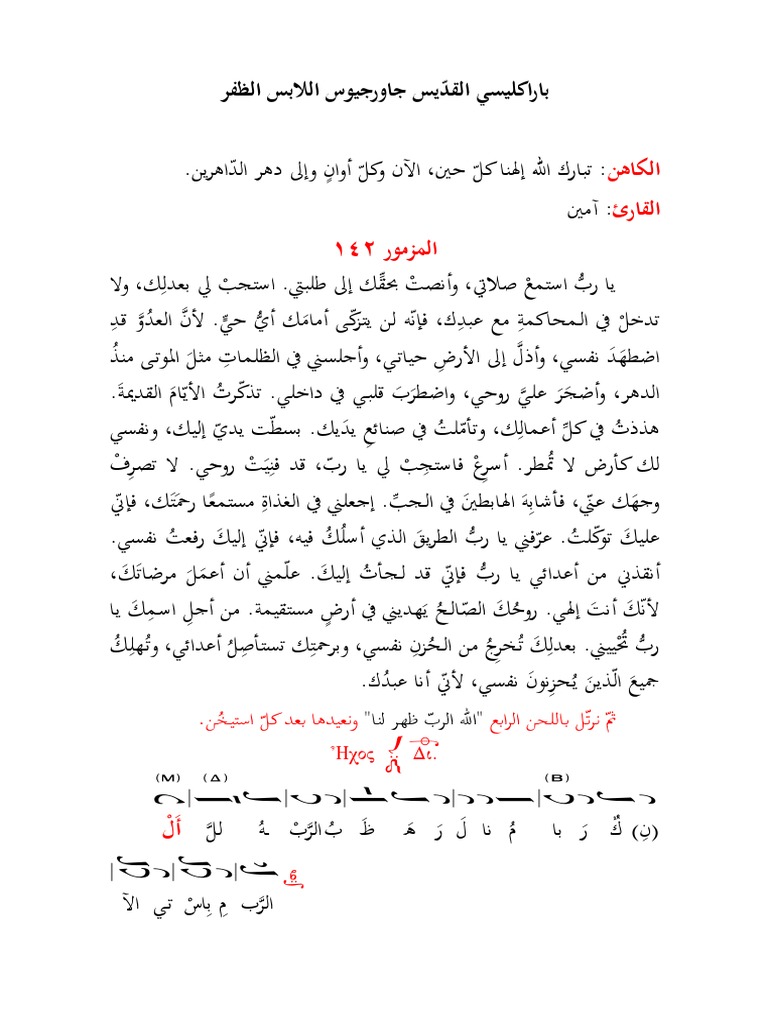 باراكليسي القدّيس جاورجيوس اللابس الظفر
الكاهن: تبارك الله إلهنا كلّ حين، الآن وكلّ أوانٍ وإلى دهر الدّاهرين.
القارئ: آمين
المزمور ١٤٢
يا ربُّ استمعْ صلاتي، وأنصتْ بحقِّك إلى طلبتي. استجبْ لي بعدلِك، ولا
تدخلْ في المحاكمةِ مع عبدِك، فإنّه لن يتزكّى أمامَك أيُّ حيٍّ. لأنَّ العدُوَّ قدِ
اضطهَدَ نفسي، وأذلَّ إلى الأرضِ حياتي، وأجلسني في الظلماتِ مثلَ الموتى منذُ
الدهر، وأضجَرَ عليَّ روحي، واضطرَبَ قلبي في داخلي. تذكّرتُ الأيّامَ القديمةَ.
هذذتُ في كلِّ أعمالِك، وتأمّلتُ في صنائعِ يدَيك. بسطّت يديّ إليك، ونفسي
لك كأرض لا تُمطر. أسرِعْ فاستجِبْ لي يا ربّ، قد فنِيَتْ روحي. لا تصرِفْ
وجهَك عنّي، فأشابِهَ الهابطينَ في الجبِّ. إجعلني في الغذاةِ مستمعًا رحمَتَك، فإنّي
عليكَ توكّلتُ. عرّفني يا ربُّ الطريقَ الذي أسلُكُ فيه، فإنّي إليكَ رفعتُ نفسي.
أنقذني من أعدائي يا ربُّ فإنّي قد لجأتُ إليكَ. علّمني أن أعمَلَ مرضاتَكَ،
لأنّكَ أنتَ إلهي. روحُكَ الصّالحُ يَهديني في أرضٍ مستقيمة. من أجلِ اسمِكَ يا
ربُّ تُحْييني. بعدلِكَ تُخرِجُ من الحُزنِ نفسي، وبرحمتِك تستأصِلُ أعدائي، وتُهلِكُ
جميعَ الّذينَ يُحزِنونَ نفسي، لأنّي أنا عبدُك.
ثمّ نرتّل باللحن الرابع "الله الربّ ظهر لنا" ونعيدها بعد كلّ استيخُن.
Ἦχος Δι.
(M) (Δ) (B)
أَلْ للَّ ـهُ الرَّبْ بُ ظَ هَـ رَ لَ نا مُ با رَ كٌ (نِ)
الآ تي بِاسْ مِ الرَّب